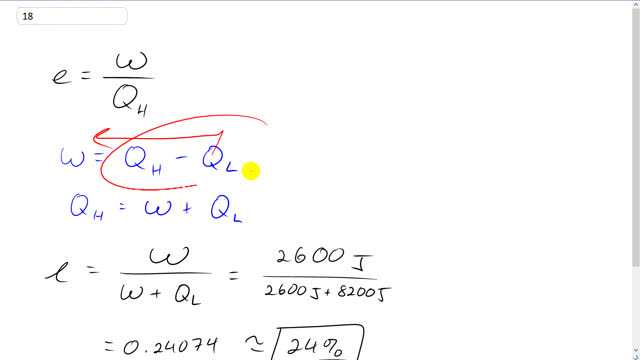 18
e = W / Q_H
W = Q_H - Q_L
Q_H = W + Q_L
e = W / (W + Q_L) = 2600 J / (2600 J + 8200 J)
= 0.24074 ≈ 24%